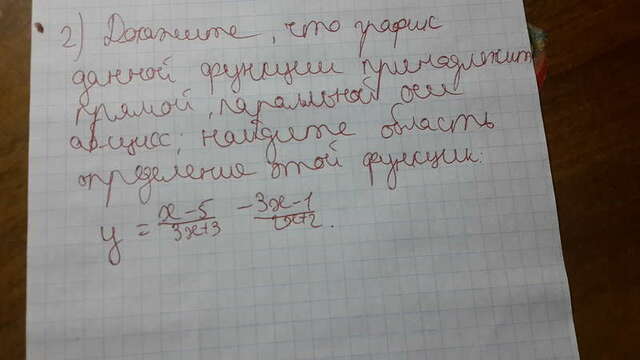 2) Докажите, что график
данной функции принадлежит
прямой, паралльной оси
абсцисс; найдите область
определения этой функции:
y = \frac{x-5}{3x+3} - \frac{3x-1}{2x+2}.